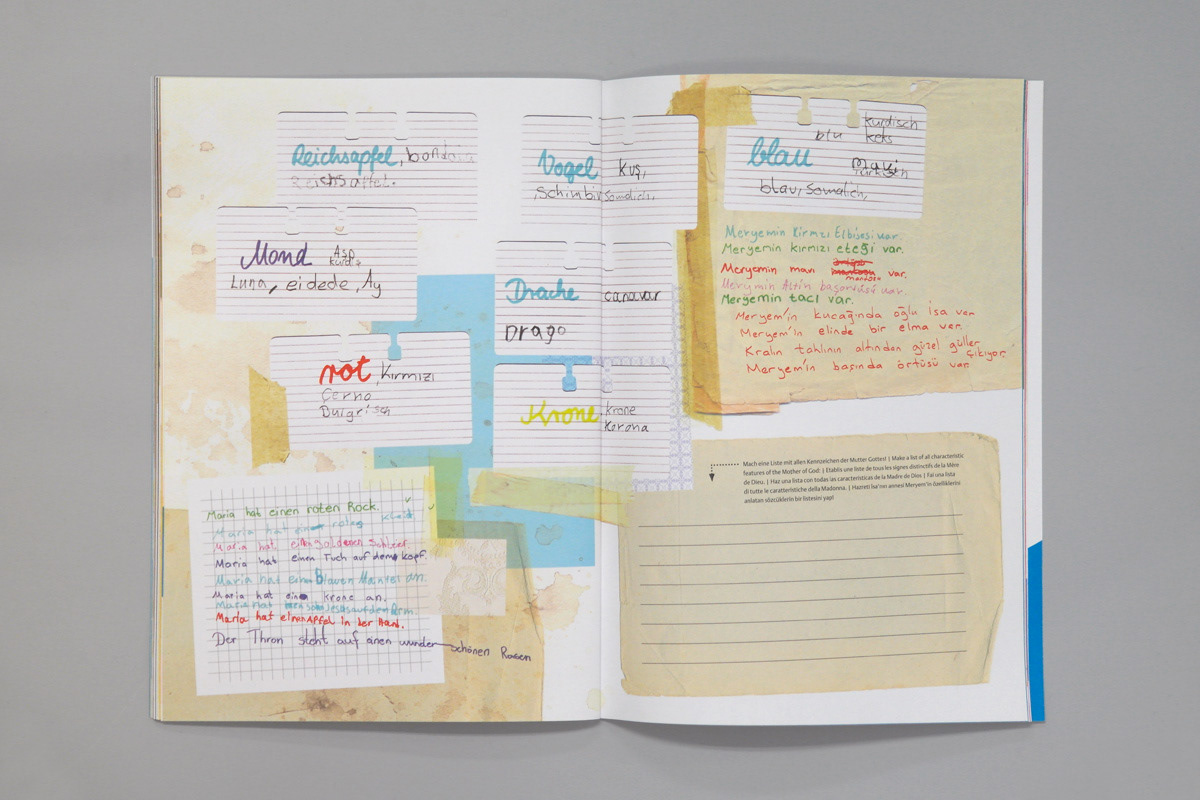 Reichsapfel, bordaia
Reichsapfel.
Mond
Asp
kurdis
Luna, eidede, Ay
rot, Kırmızı
Çerno
Bulgrisch
Vogel kuş,
,Schimbir Somalich,
Drache canavar
Drago
Krone, krone
Korona
kurdisch
blu keks
blau Mavi
Türkisch
blau, Somalich,
Maria hat einen roten Rock.
Maria hat ein rotes Kleid
Maria hat ein goldenen Schleier.
Maria hat einen Tuch auf dem kopf.
Maria hat einen Blauen Mantel an.
Maria hat eine krone an.
Maria hat Jesus auf den Arm.
Maria hat einen Apfel in der Hand.
Der Thron steht auf einen wunder schönen Rosen
Meryemin Kirmızı Elbisesi var.
Meryemin kırmızı eteği var.
Meryemin mavi var.
mantosu
Merymin Altin başörtüsü var.
Meryemin tacı var.
Meryem'in kucağında oğlu İsa var
Meryem'in elinde bir elma var.
Kralın tahtının altından güzel güller
çıkıyor.
Meryem'in başında örtüsü var
Mach eine Liste mit allen Kennzeichen der Mutter Gottes! | Make a list of all characteristic
features of the Mother of God: | Etablis une liste de tous les signes distinctifs de la Mère
de Dieu. | Haz una lista con todas las características de la Madre de Dios | Fai una lista
di tutte le caratteristiche della Madonna. | Hazreti İsa'nın annesi Meryem'in özelliklerini
anlatan sözcüklerin bir listesini yap!